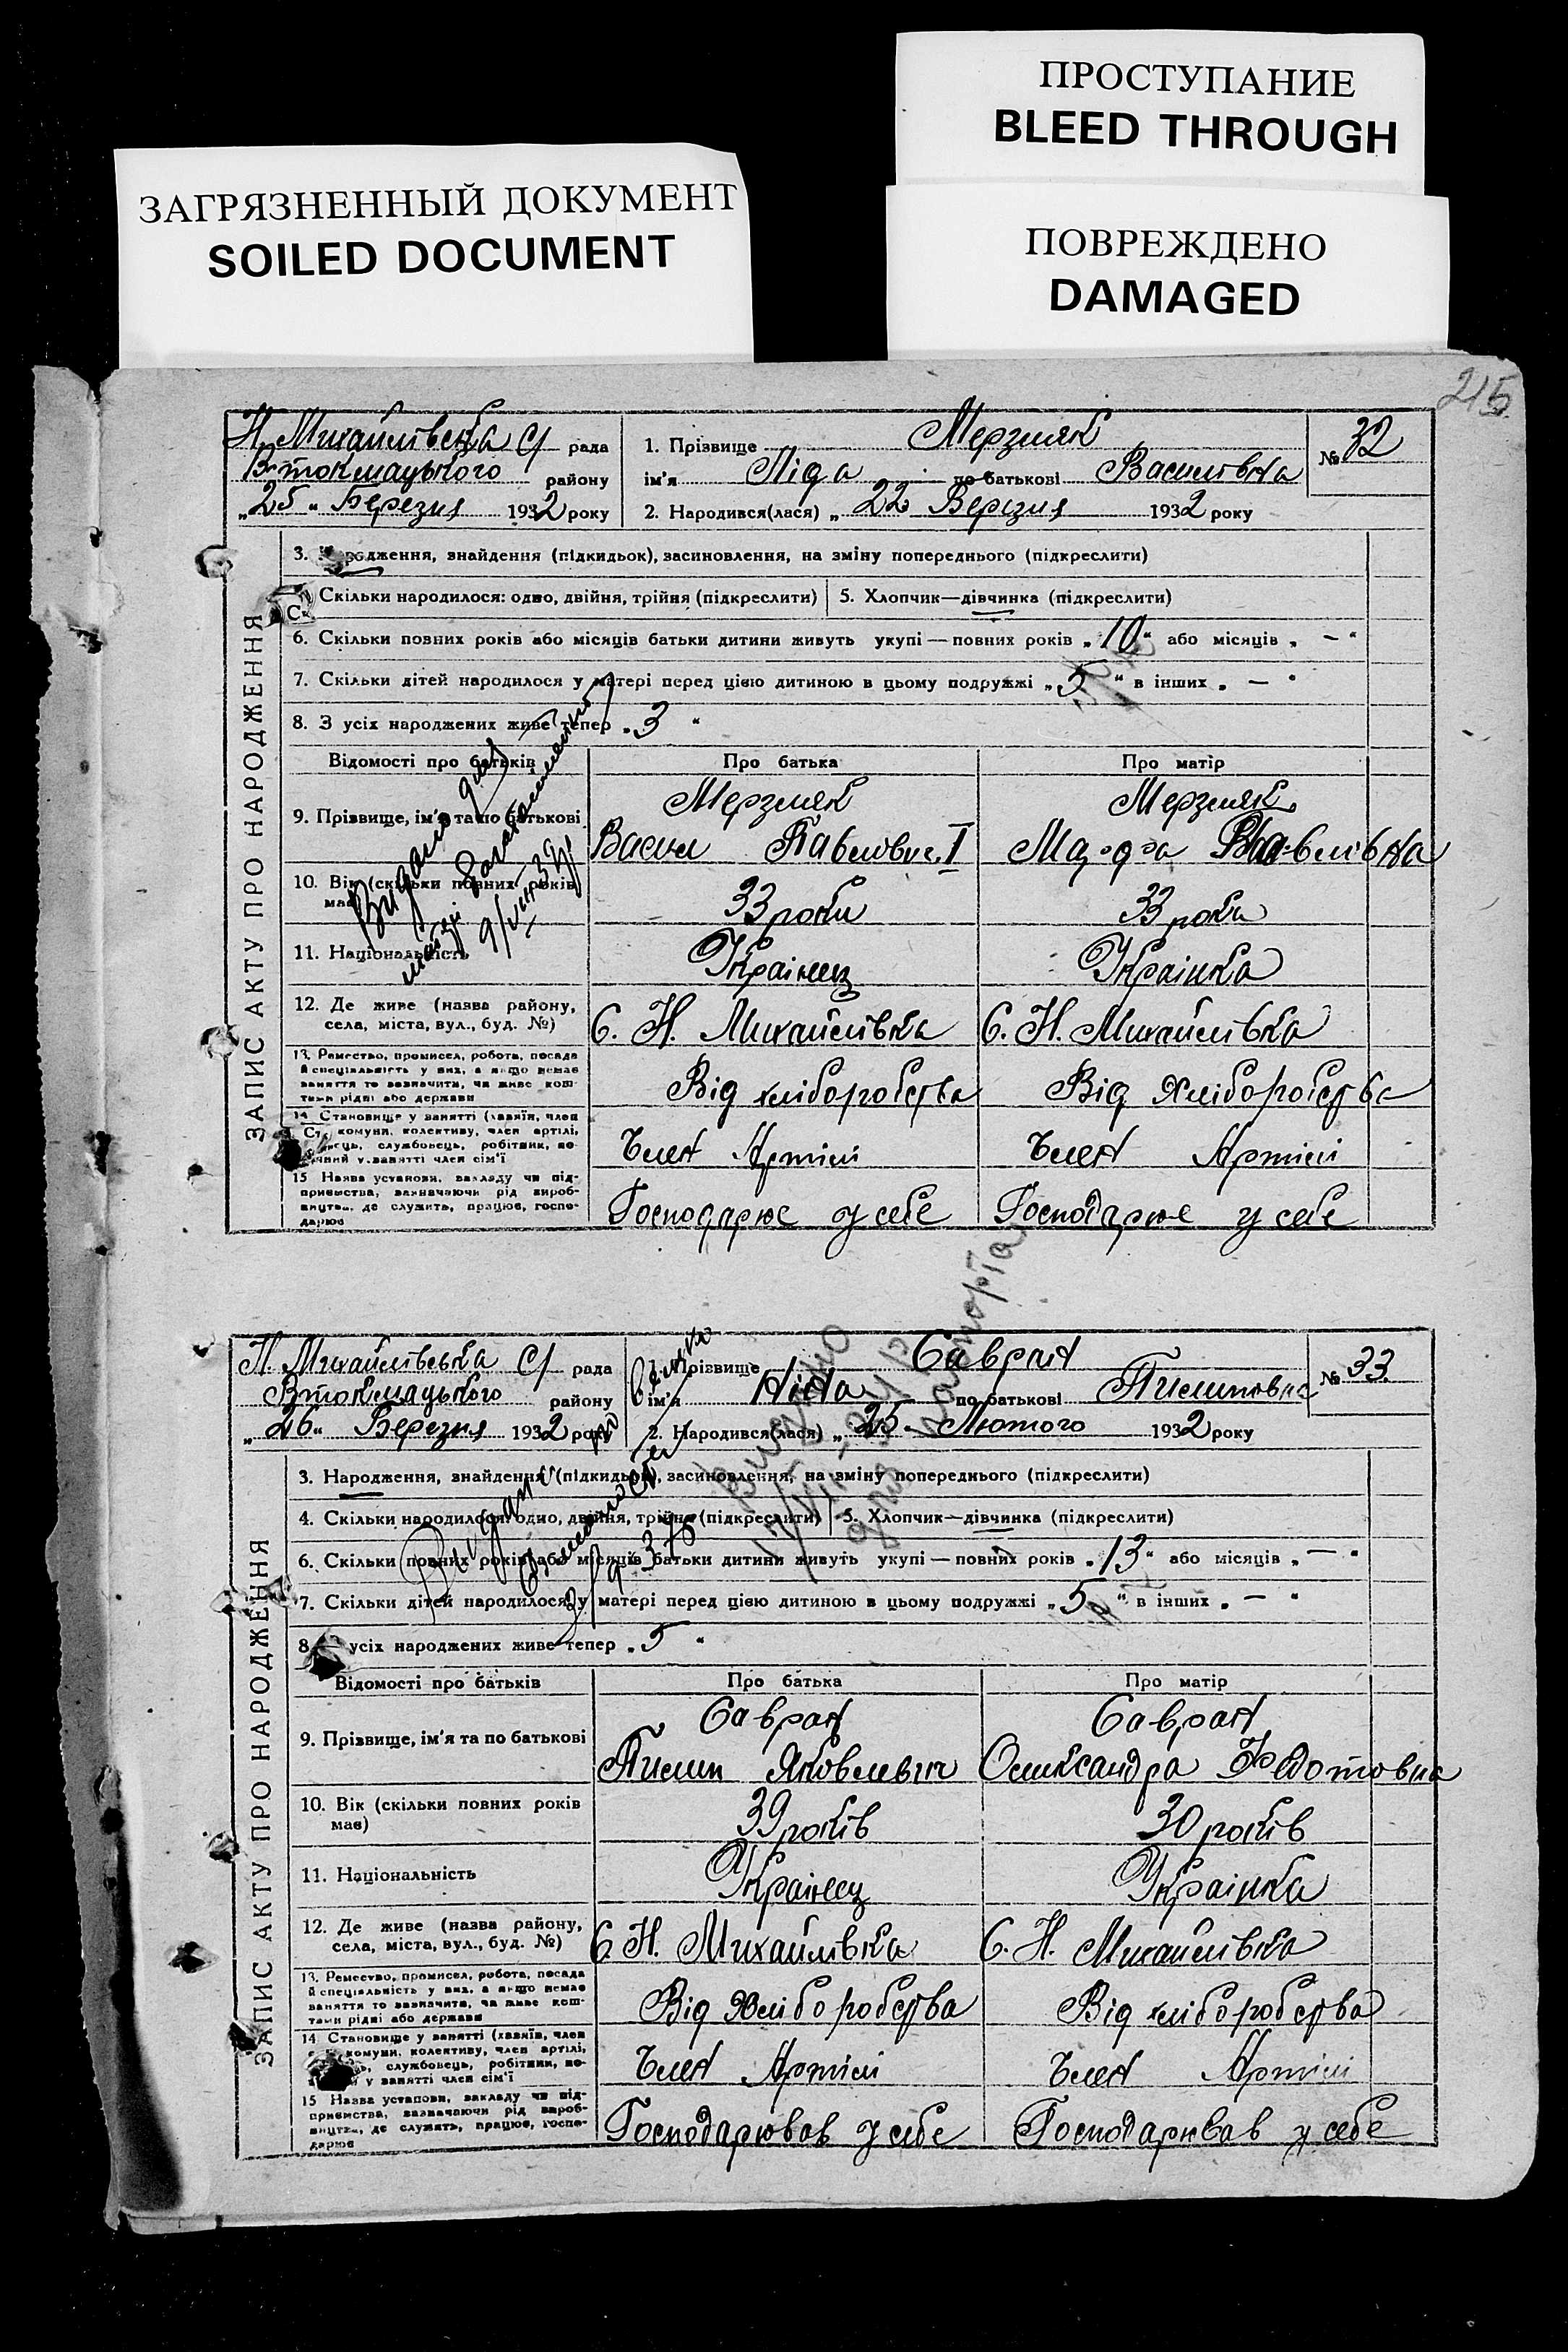 ПРОСТУПАНИЕ
BLEED THROUGH
ЗАГРЯЗНЕННЫЙ ДОКУМЕНТ
SOILED DOCUMENT
ПОВРЕЖДЕНО
DAMAGED
215
Н. Михайлівська С/ рада
Втокмацького району
„25“ Березня 1932 року
1. Прізвище Мерзляк
ім'я Ліда по батькові Василівна
2. Народився(лася) „22 Березня 1932 року
№ 32
ЗАПИС АКТУ ПРО НАРОДЖЕННЯ
3. Народження, знайдення (підкидьок), засиновлення, на зміну попереднього (підкреслити)
Скільки народилося: одно, двійня, трійня (підкреслити) 5. Хлопчик—дівчинка (підкреслити)
6. Скільки повних років або місяців батьки дитини живуть укупі — повних років „10“ або місяців „ — “
7. Скільки дітей народилося у матері перед цією дитиною в цьому подружжі „5“ в інших „ — “
8. З усіх народжених живе тепер „3“
Відомості про батьків Про батька Про матір
9. Прізвище, ім'я та по батькові Мерзляк Мерзляк
Василь Павлович I
10. Вік (скільки повних років має) 33 роки 33 роки
11. Національність Українец Українка
12. Де живе (назва району, села, міста, вул., буд. №) С. Н. Михайлівка С. Н. Михайлівка
13. Ремество, промисел, робота, посада й спеціальність у них, а якщо немає заняття то зазначити, чи живе коштами рідні або держави Від хліборобства Від Хліборобства
14. Становище у занятті (хазяїн, член комуни, колективу, член артілі, службовець, робітник, член сім'ї Член Артілі Член Артілі
15 Назва установи, закладу чи підприємства, зазначаючи рід виробництва, де служить, працює, господарює Господарює у себе Господарює у себе
Н. Михайлівська С/ рада
Втокмацького району
„26“ Березня 1932 року
1. Прізвище Савран
ім'я Ніна по батькові Пилиповна
2. Народився(лася) „25 Лютого 1932 року
№ 33
ЗАПИС АКТУ ПРО НАРОДЖЕННЯ
3. Народження, знайдення (підкидьок), засиновлення, на зміну попереднього (підкреслити)
4. Скільки народилося: одно, двійня, трійня (підкреслити) 5. Хлопчик—дівчинка (підкреслити)
6. Скільки повних років або місяців батьки дитини живуть укупі — повних років „13“ або місяців „ — “
7. Скільки дітей народилося у матері перед цією дитиною в цьому подружжі „5“ в інших „ — “
8. З усіх народжених живе тепер „5“
Відомості про батьків Про батька Про матір
9. Прізвище, ім'я та по батькові Савран Савран
Пилип Яковлевич Олександра Федотовна
10. Вік (скільки повних років має) 39 років 30 років
11. Національність Українец Українка
12. Де живе (назва району, села, міста, вул., буд. №) С. Н. Михайлівка С. Н. Михайлівка
13. Ремество, промисел, робота, посада й спеціальність у них, а якщо немає заняття то зазначити, чи живе коштами рідні або держави Від Хліборобства Від хліборобства
14. Становище у занятті (хазяїн, член комуни, колективу, член артілі, службовець, робітник, у занятті член сім'ї Член Артілі Член Артілі
15 Назва установи, закладу чи підприємства, зазначаючи рід виробництва, де служить, працює, господарює Господарював у себе Господарював у себе